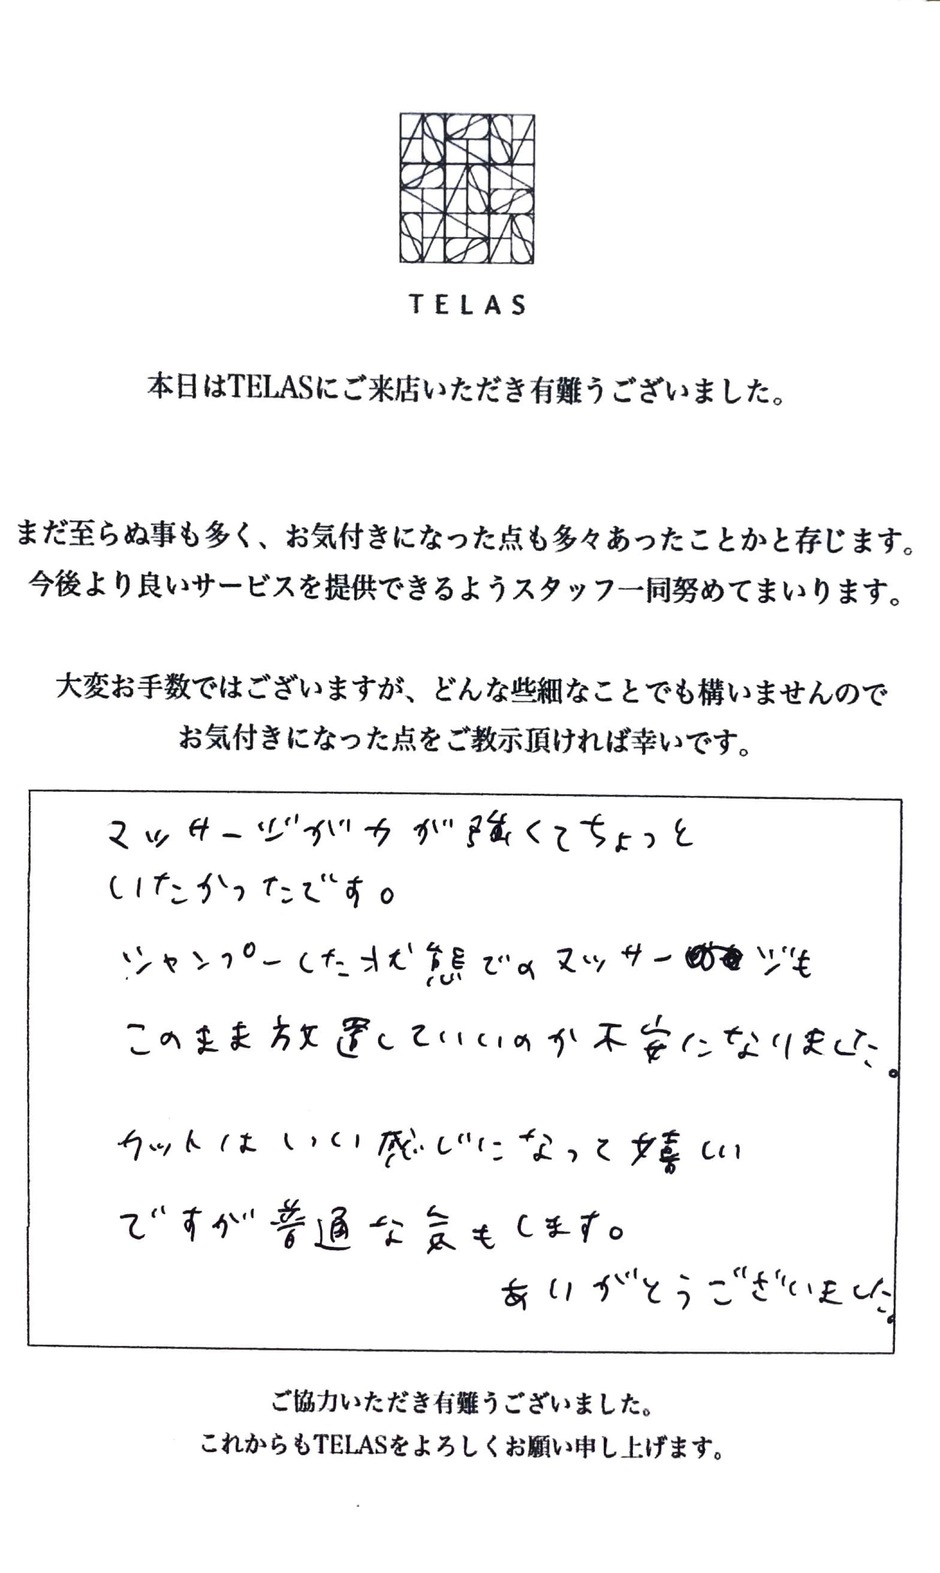 TELAS
本日はTELASにご来店いただき有難うございました。
まだ至らぬ事も多く、お気付きになった点も多々あったことかと存じます。
今後より良いサービスを提供できるようスタッフ一同努めてまいります。
大変お手数ではございますが、どんな些細なことでも構いませんので
お気付きになった点をご教示頂ければ幸いです。
マッサージが力が強くてちょっと
いたかったです。
シャンプーした状態でのマッサージも
このまま放置していいのか不安になりました。
カットはいい感じになって嬉しい
ですが普通な気もします。
ありがとうございました。
ご協力いただき有難うございました。
これからもTELASをよろしくお願い申し上げます。